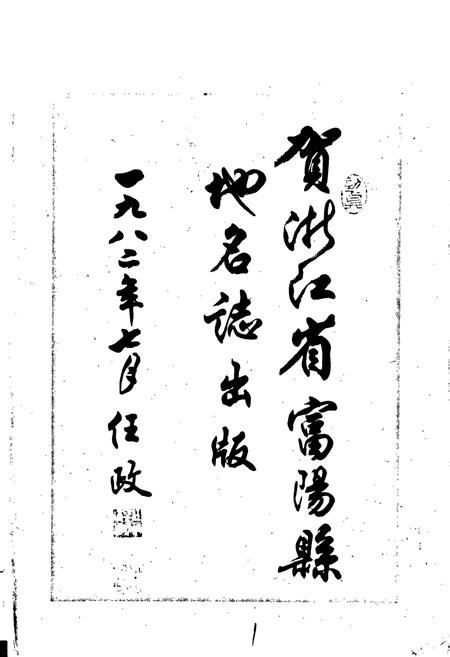 賀浙江省富陽縣
地名誌出版
一九八二年七月任政
1